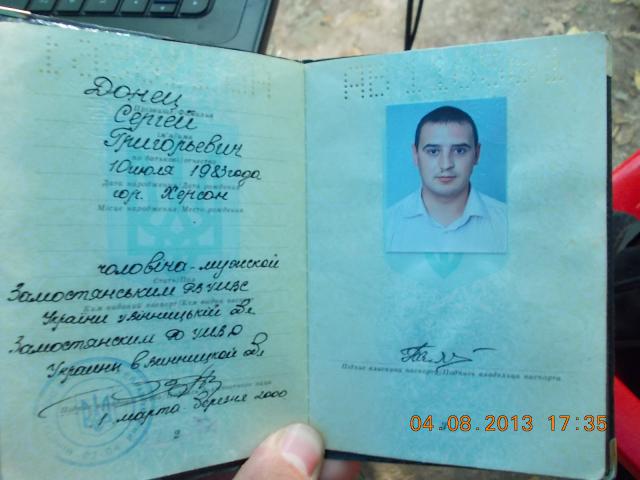 Донец
Прізвище/Фамилия
Сергей
Ім'я/Имя
Григорьевич
по батькові/отчество
10 июля 1983 года
Дата народження/Дата рождения
гор. Херсон
Місце народження/Место рождения
чоловіча-мужской
Стать/Пол
Замостянським РВ УМВС
Ким виданий паспорт/Кем выдан паспорт
України у Вінницькій
Замостянским РО УМВД
Украины в Винницкой
1 марта березня 2000
2
Підпис власника паспорта/Подпись владельца паспорта
04.08.2013 17:35